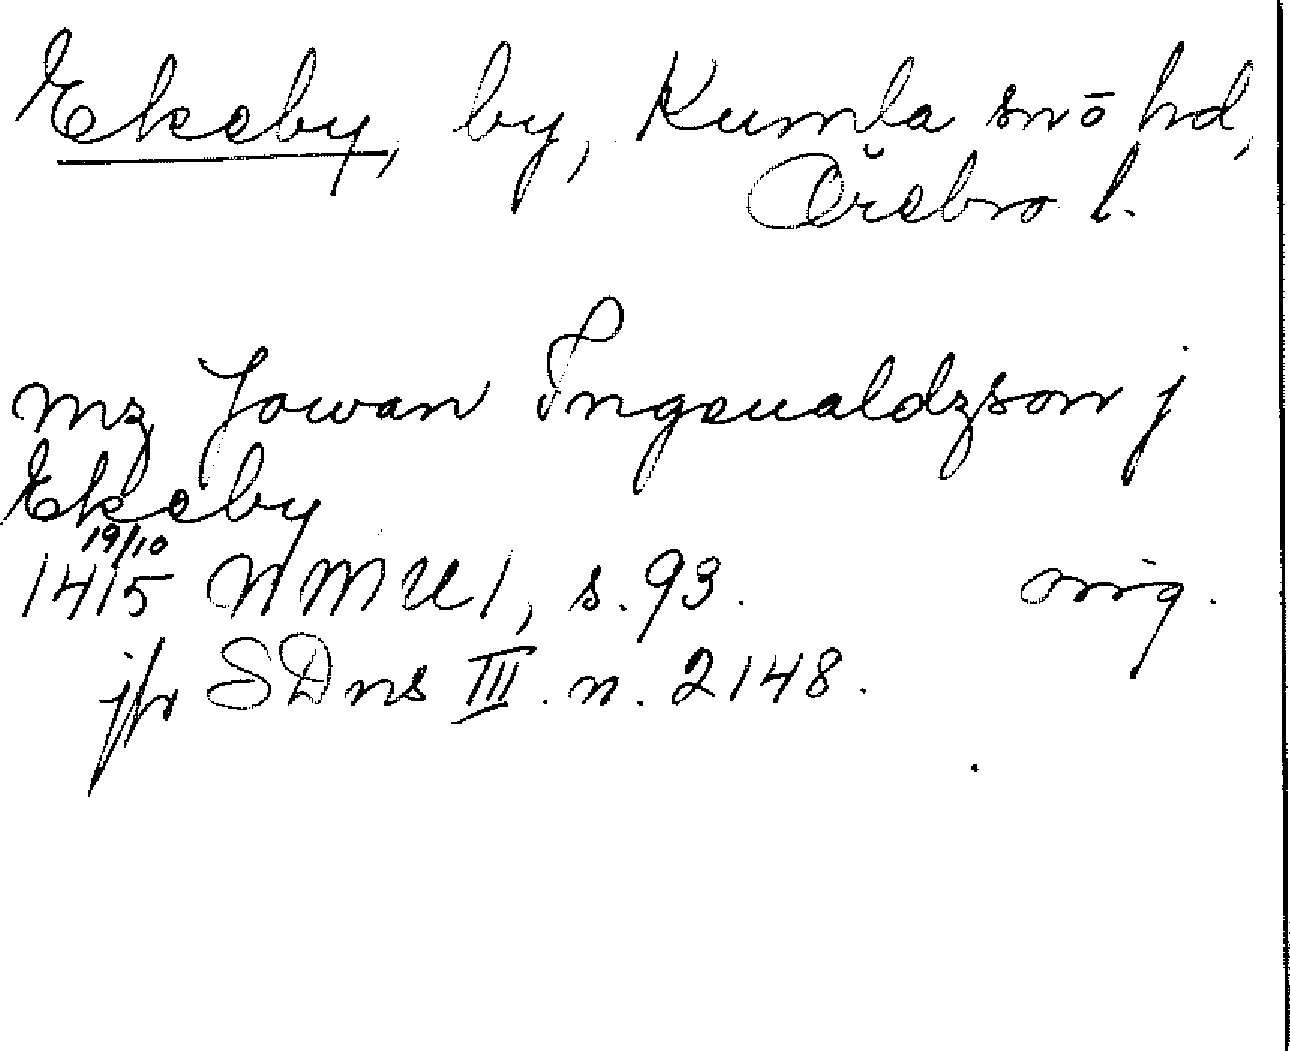 Ekeby, by, Kumla sn o hd,
Örebro l.
mz Jowan Ingeualdzson j
Ekeby
19/10
1415 NMU 1, s. 93. orig.
jfr SDns III. n. 2148.